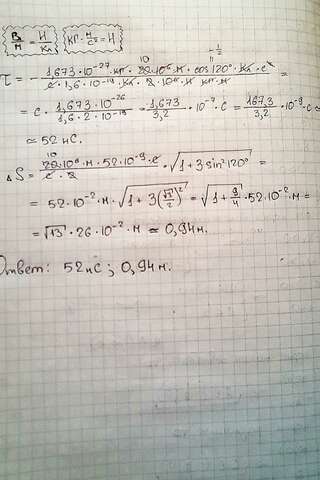 В/м = Н/Кл кг·м/с² = Н
τ = - 1,673·10⁻²⁷·кг· 10 20·10⁶·м·cos120°·Кл·с² / с·1,6·10⁻¹⁹·Кл· ·10 ·Н·кг·м =
= с · 1,673·10⁻²⁶ / 1,6·2·10⁻¹⁹ = 1,673/3,2 · 10⁻⁷ с = 167,3/3,2 · 10⁻⁹ с ≃
≃ 52 нс.
ΔS = 10 20·10⁶·м·52·10⁻⁹·с / с·2 · √(1+3sin²120°) =
= 52·10⁻²·м·√(1+3(√3/2)²) = √(1+9/4)·52·10⁻²·м =
= √13·26·10⁻²·м ≃ 0,94м.
Ответ: 52нс; 0,94м.